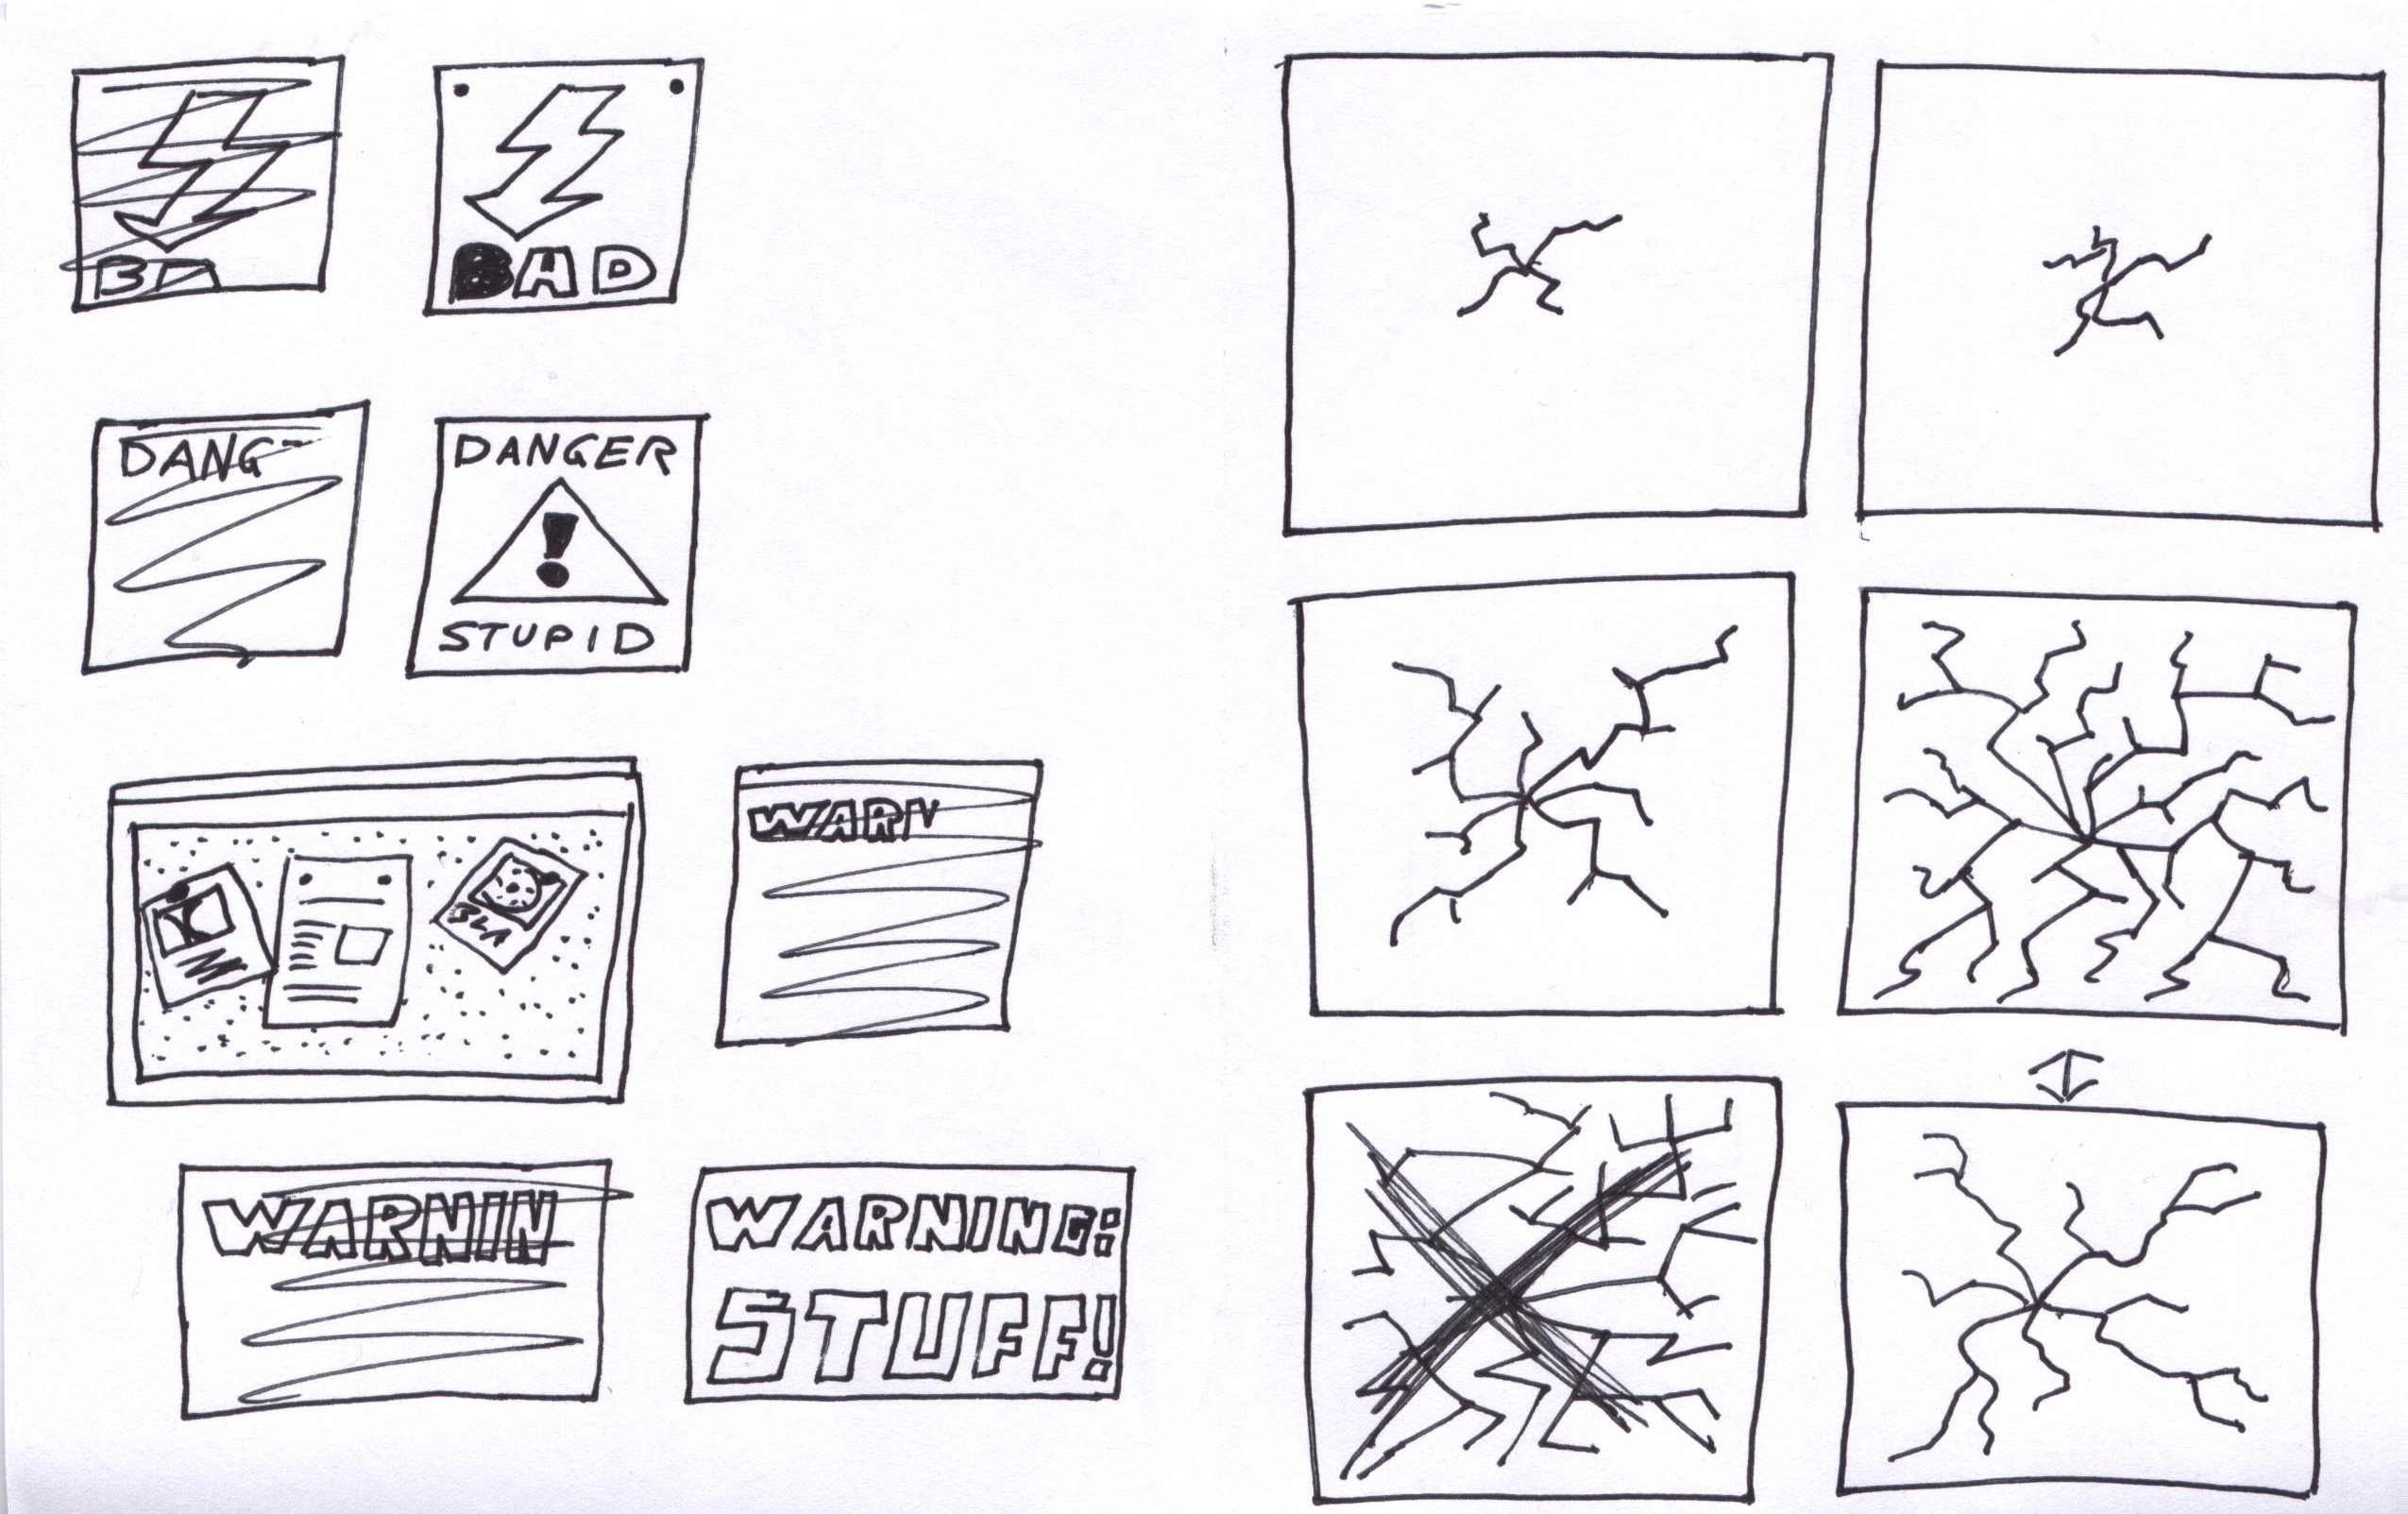 BA
BAD
DANG
DANGER
STUPID
BLA
WARN
WARNIN
WARNING:
STUFF!